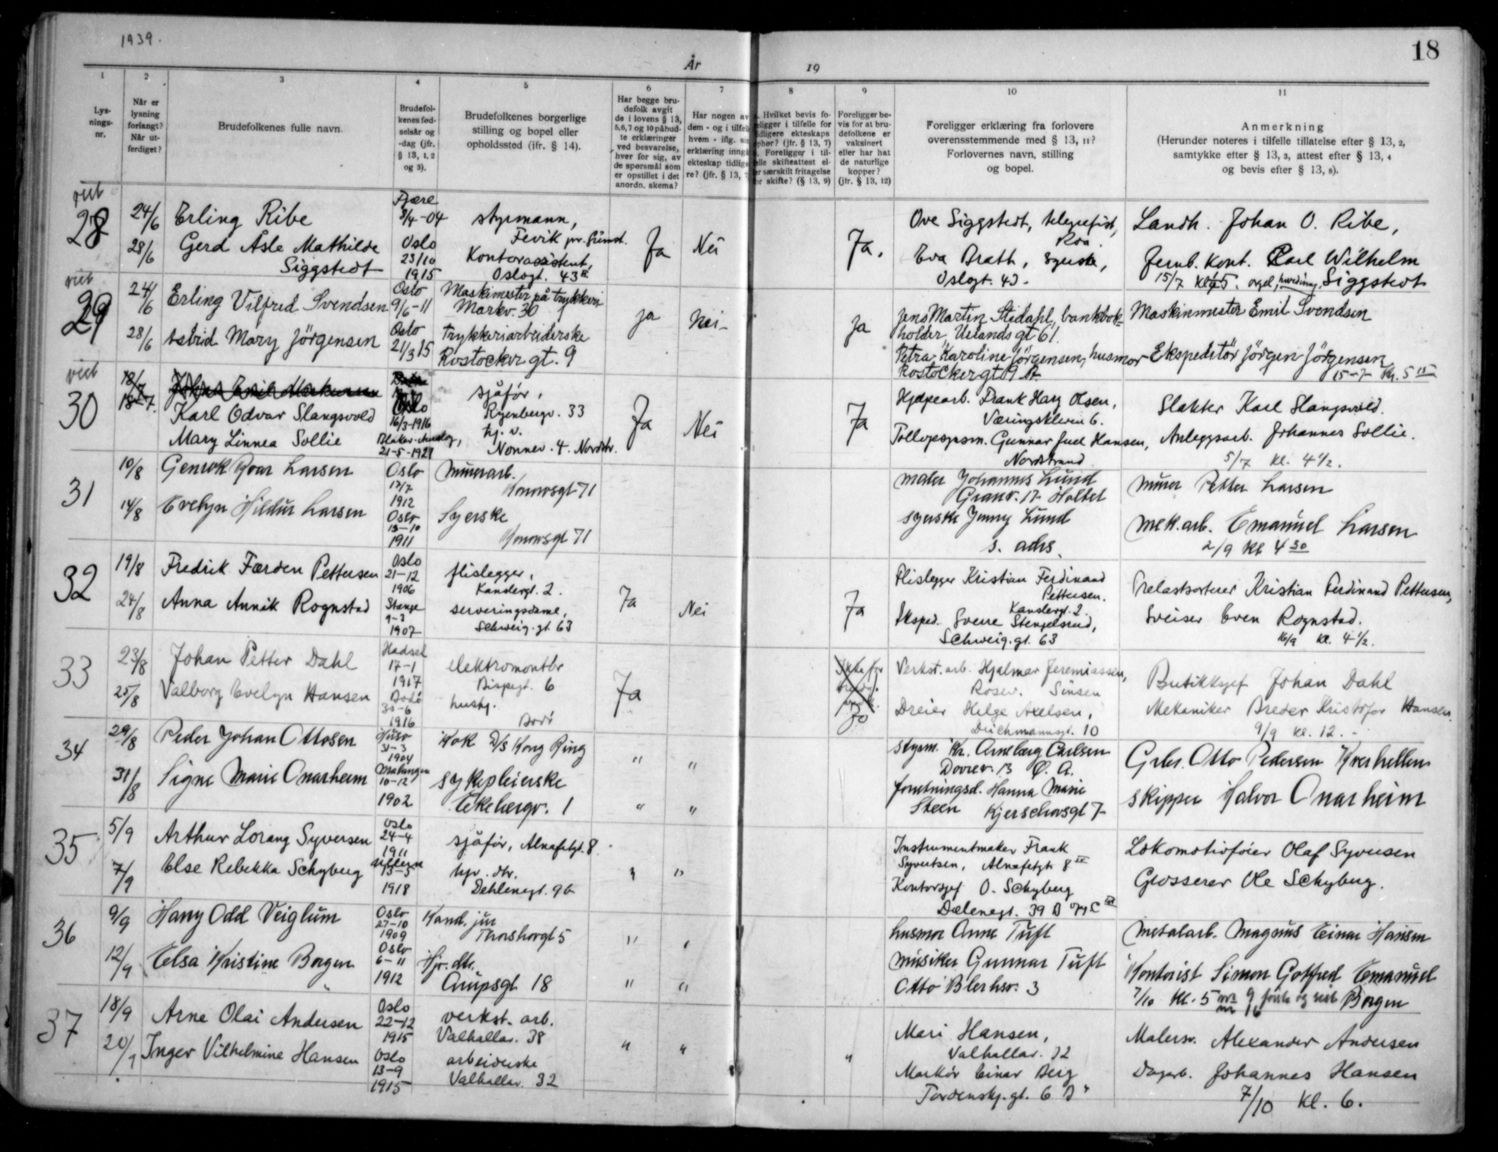 1939.
18
År
19
1
2
3
4
5
6
7
8
9
10
11
Lys-
nings-
nr.
Når er
lysning
forlangt?
Når ut-
ferdiget?
Brudefolkenes fulle navn.
Brudefol-
kenes fød-
selsår og
-dag (jfr.
§ 13, 1, 2
og 3).
Brudefolkenes borgerlige
stilling og bopel eller
opholdssted (ifr. § 14).
Har begge bru-
defolk avgit
de i lovens § 13,
5,6,7 og 10 påbud-
te erklæringer
ved besvarelse,
hver for sig, av
de spørsmål som
er opstillet i det
anordn. skema?
Foreligger be-
vis for at bru-
defolkene er
vaksinert
eller har hat
de naturlige
kopper?
(jfr. § 13, 12)
Foreligger erklæring fra forlovere
overensstemmende med § 13, 11?
Forlovernes navn, stilling
og bopel.
Anmerkning
(Herunder noteres i tilfelle tillatelse efter § 13, 2,
samtykke efter § 13, 3, attest efter § 13, 4
og bevis efter § 13, 8).
viet
28
24/6
28/6
Erling Ribe
Gerd Åsle Mathilde
Siggstedt
Fjære
3/4-04
Oslo
23/10
1915
styrmann,
Fevik pr. Grimst.
Kontorassistent,
Oslogt. 43 II
Ja
Nei
Ja.
Ove Siggstedt, telegrafist,
Roa.
Eva Brath,
Oslogt. 43.
Landh. Johan O. Ribe,
Jernb. kont. Carl Wilhelm
Siggstedt
viet
29
24/6
28/6
Erling Vilfred Svendsen
Astrid Mary Jörgensen
Oslo
9/6-11
Oslo
21/3 15
Maskinmester på trykkeri
Markv. 30
trykkeriarbeiderske
Rostocker gt. 9
ja
Nei
ja
Jens Martin Stedahl, bankbok-
holder, Uelands gt 61.
Petra Karoline Jörgensen, husmor
Rostocker gt 9
Maskinmester Emil Svendsen
Ekspeditör Jörgen Jörgensen
15-7 kl. 5
viet
30
18-7
Karl Odvar Slangsvold
Mary Linnea Sollie
Oslo
16/3-1916
21-5-1921
sjåför,
Ryenbergv. 33
hj. v.
Nonnev. 4. Nordstr.
Ja
Nei
Ja
Hjelpearb. Frank Harry Olsen,
Væringskleiven 6.
Gunnar Juel Hansen,
Nordstrand
Slakter Karl Slangsvold.
Anleggsarb. Johannes Sollie.
5/7 kl. 4 1/2.
31
10/8
14/8
Genrek Roar Larsen
Evelyn Hildur Larsen
Oslo
17/7
1912
Oslo
13-10
1911
Murerarb.
Smorsgt 71
Syerske
Smorsgt 71
maler Johannes Lund
Granv. 17 Holtet
syerske Jenny Lund
s. adrs.
Murer Petter Larsen
mek. arb. Emanuel Larsen
2/9 Kl 4 30
32
19/8
24/8
Fredrik Færden Pettersen
Anna Annik Rognstad
Oslo
21-12
1906
Stange
9-3
1907
flislegger,
Kanslergt. 2.
serveringsdame,
Schweig. gt. 63
Ja
Nei
Ja
Flislegger Kristian Ferdinand
Pettersen.
Kanslergt. 2.
Eksped. Sverre Stengelsrud,
Schweig. gt. 63
Kristian Ferdinand Pettersen,
Sveiser Even Rognstad.
16/9 kl. 4 1/2.
33
23/8
25/8
Johan Petter Dahl
Valborg Evelyn Hansen
Hadsel
17-1
1917
Bodö
30-6
1916
elektromontör
Bispegt. 6
husbj.
Bodö
Ja
Ja
Verkst. arb. Hjalmar Jeremiassen,
Rosev. Sinsen
Dreier Helge Axelsen,
Deichmannsgt. 10
Butikksjef Johan Dahl
Mekaniker Breder Kristofer Hansen
9/9 kl. 12.
34
29/8
31/8
Peder Johan Ottosen
Signe Marie Onarheim
31-3
1904
10-12
1902
Kok D/s Kong Ring
Sykepleierske
Ekebergv. 1
"
"
"
"
Styrm. Kr. Arneberg Carlsen
Dovrev. 13 Ö. A.
forretningsd. Hanna Marie
Steen Kjerschowsgt 7
Grbr. Otto Pedersen Kverhellen
Skipper Halvor Onarheim
35
5/9
7/9
Arthur Lorang Syversen
Else Rebekka Schyberg
Oslo
24-4
1911
13-5
1918
sjåför, Alnafetgt. 8
hjv. dtr.
Dehlenegt. 9b
"
"
Instrumentmaker Frank
Syvertsen, Alnafetgt. 8 IV
Kontorsjef O. Schyberg
Dælenegt. 39 B
Lokomotivfører Olaf Syversen
Grosserer Ole Schyberg.
36
9/9
12/9
Harry Odd Veiglum
Elsa Kristine Borgen
Oslo
27-10
1909
Oslo
6-11
1912
Kand. jur
Thorshovgt 5
Hjv. dtr.
Grupsgt 18
"
"
"
"
husmor Anne Tuft
musiker Gunnar Tuft
Otto Blerhsv. 3
Metalarb. Magnus Einar Hansen
Kontorist Simon Gotfred Emanuel
Borgen
7/10 kl. 5
37
18/9
20/9
Arne Olai Andersen
Inger Vilhelmine Hansen
Oslo
22-12
1915
Oslo
13-9
1915
verkst. arb.
Valhallav. 38
arbeiderske
Valhallav. 32
"
"
"
Mari Hansen,
Valhallav. 32
Markör Einar Berg
Tordenskj. gt. 6 B
Malerm. Alexander Andersen
Dagarb. Johannes Hansen
7/10 kl. 6.